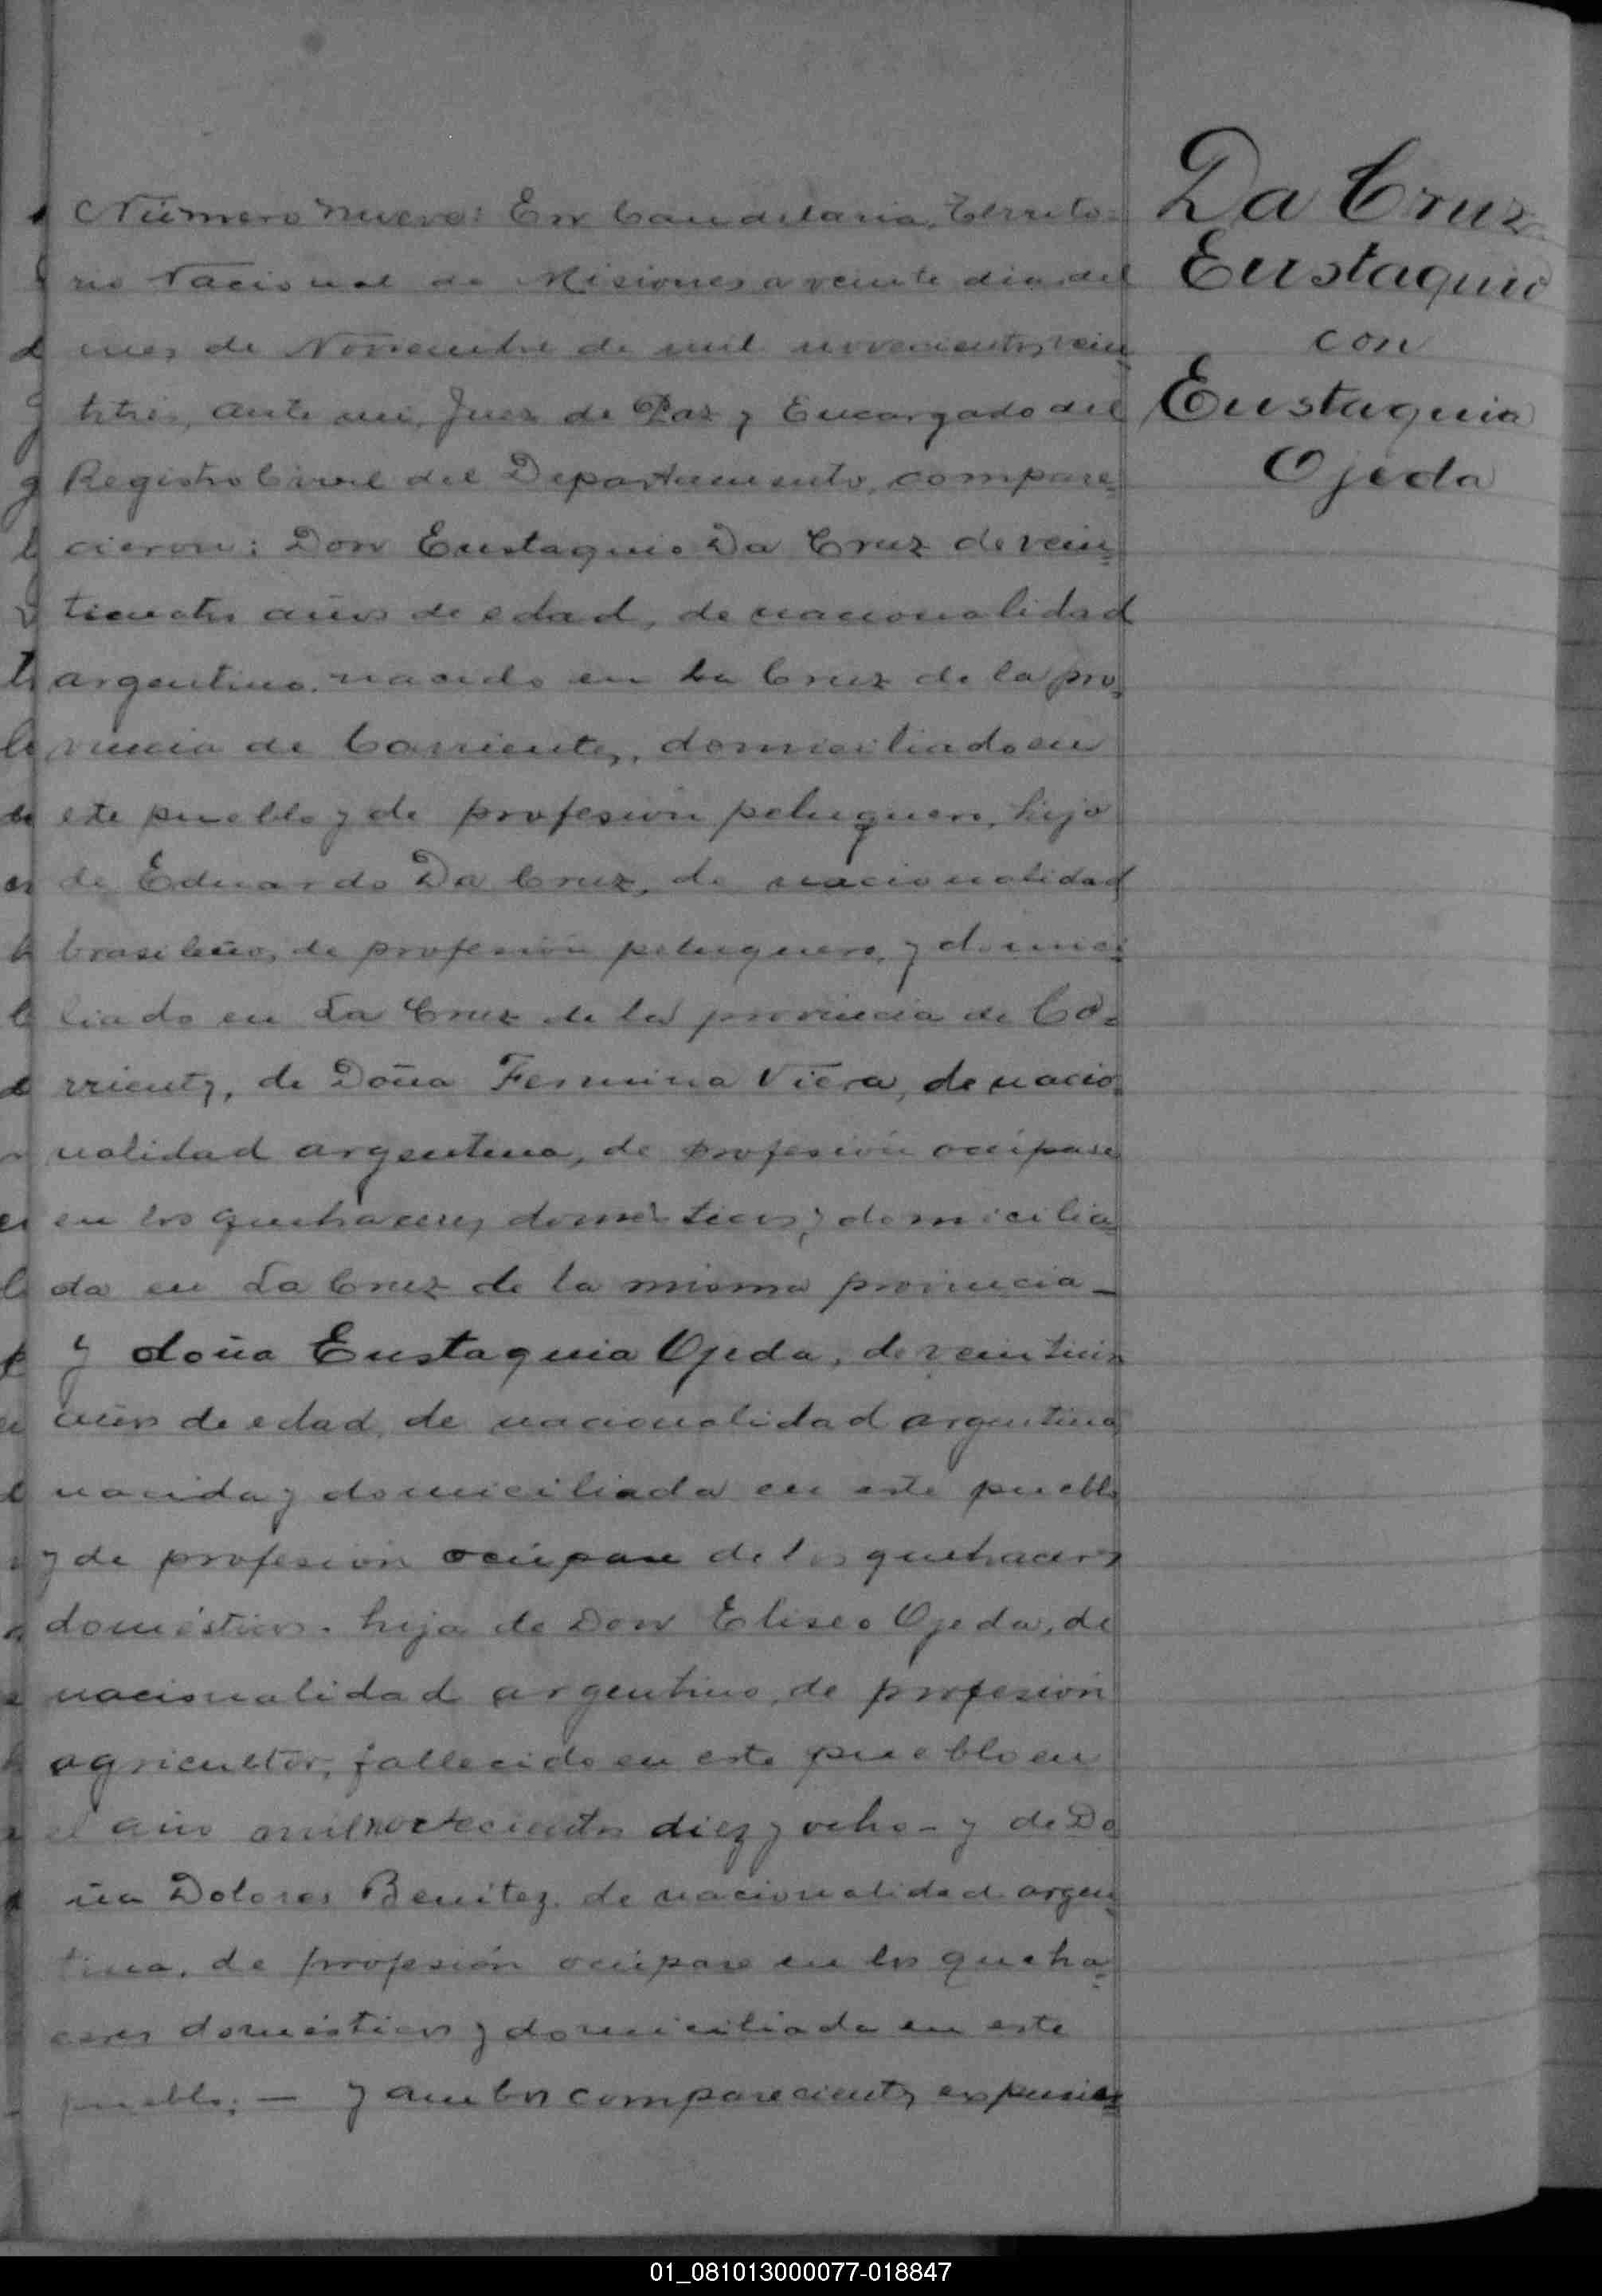 Número nueve: En Candelaria, Territo=
rio Nacional de Misiones a veinte dias del
mes de Noviembre de mil novecientos vein=
titrés, ante mi, Juez de Paz y Encargado del
Registro Civil del Departamento, compare=
cieron: Don Eustaquio Da Cruz de vein=
ticuatro años de edad, de nacionalidad
argentino, nacido en La Cruz de la pro=
vincia de Corrientes, domiciliado en
este pueblo y de profesión peluquero, hijo
de Eduardo Da Cruz, de nacionalidad
brasileño, de profesión peluquero, y domici=
liado en La Cruz de la provincia de Co=
rrientes, de Doña Fermina Viera, de nacio=
nalidad argentina, de profesión ocupase
en los quehaceres domésticos, y domicilia=
da en La Cruz de la misma provincia _
y doña Eustaquia Ojeda, de
años de edad, de nacionalidad argentina
nacida y domiciliada en este pueblo
y de profesión ocupase de los quehaceres
domésticos. hija de Don Eliseo Ojeda, de
nacionalidad argentino, de profesión
agricultor, fallecido en este pueblo en
el año diez y ocho - y de Do
ña Dolores Benitez, de nacionalidad argen=
tina, de profesión ocupase en los queha=
ceres domésticos y domiciliada en este
pueblo; — y ambos comparecientes expusie=
Da Cruz
Eustaquio
con
Eustaquia
Ojeda
01_081013000077-018847